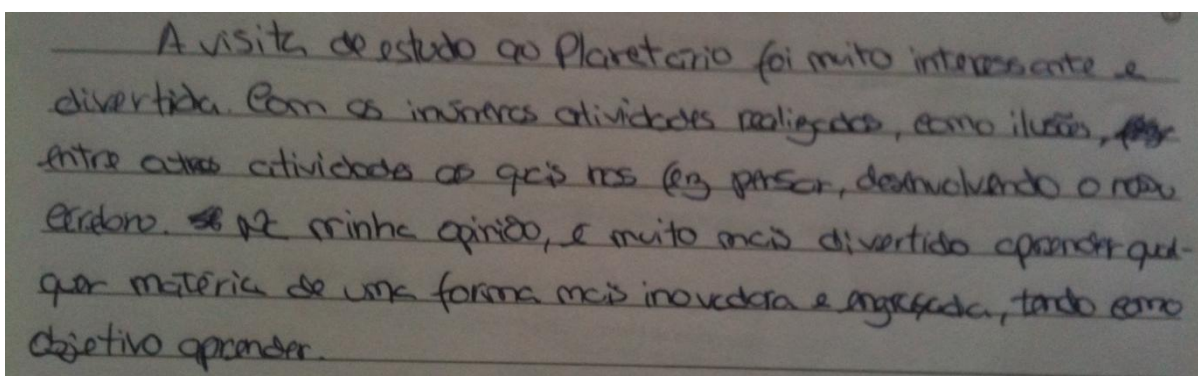 A visita de estudo ao Planetário foi muito interessante e
divertida. Com as inúmeras atividades realizadas, como ilusão,
entre outras atividades as quais nos fez pensar, desenvolvendo o nosso
cérebro. Na minha opinião, é muito mais divertido aprender qual-
quer matéria de uma forma mais inovadora e engraçada, tendo como
objetivo aprender.